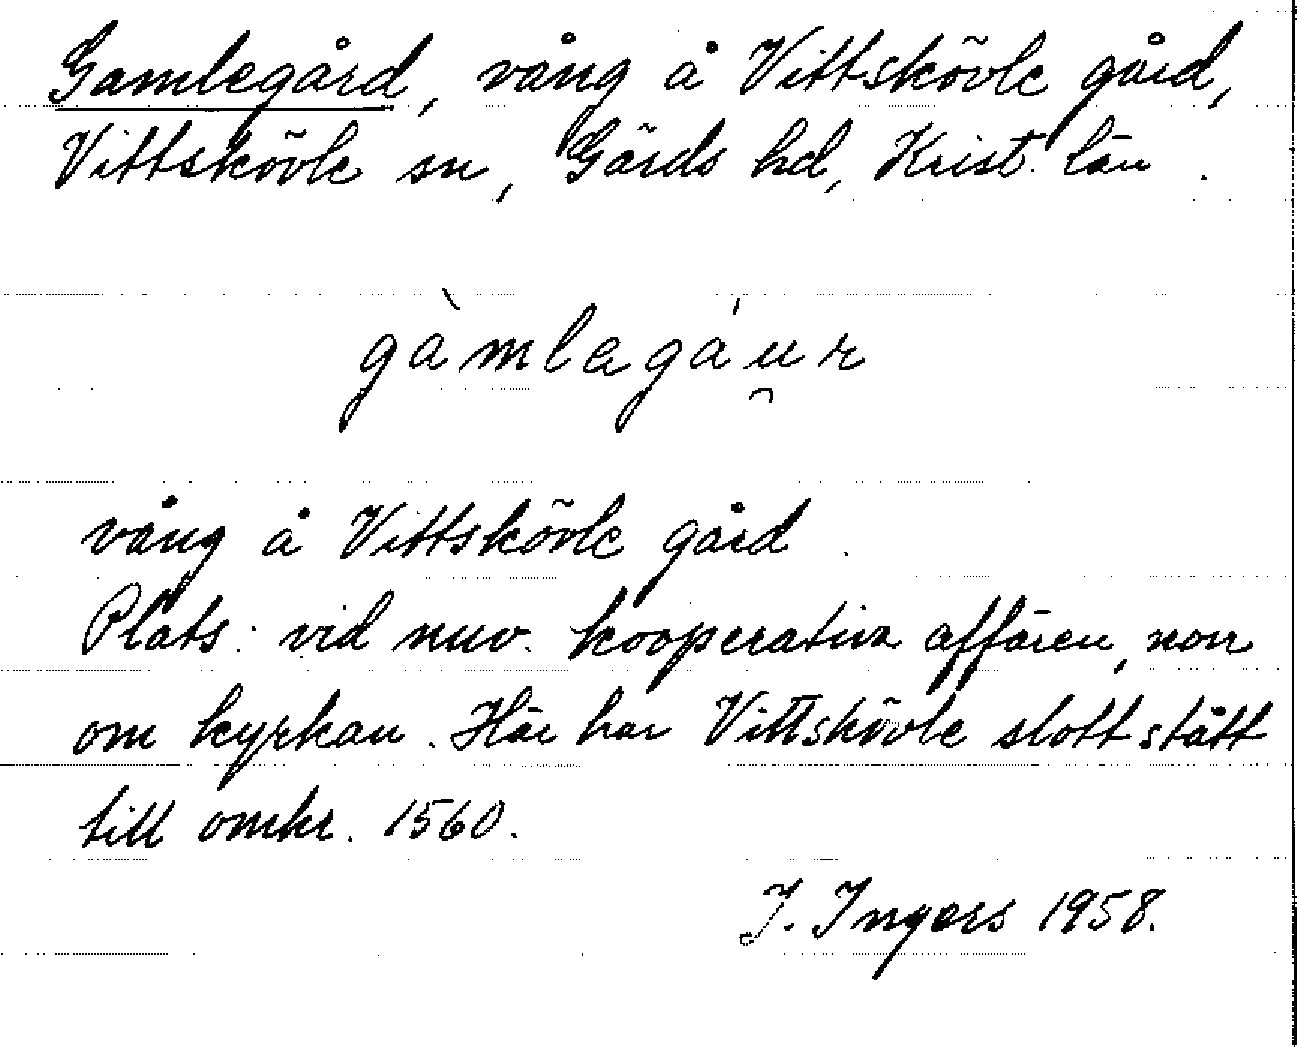 Gamlegård, vång å Vittskövle gård,
Vittskövle sn, Gärds hd, Krist. län.
gàmlagáu̯r
vång å Vittskövle gård.
Plats: vid nuv. kooperativa affären, norr
om kyrkan. Här har Vittskövle slott stått
till omkr. 1560.
I. Ingers 1958.